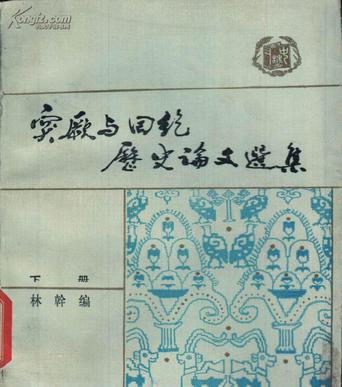 kongfz.com
突厥与回纥
歷史論文選集
下册
林幹编